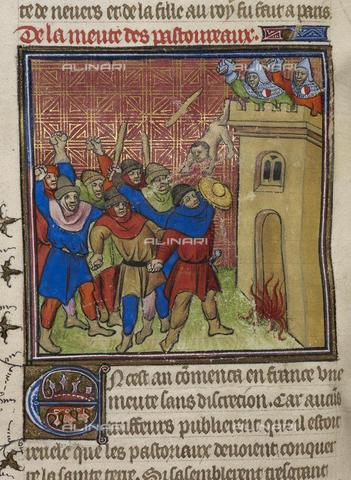 te de neuers et de la fille au roy fu faite a paris.
De la meute des pastoureaux.
ALINARI
ALINARI
ALINARI
ALINARI
En cest an cōmenca en france vne
meute sans discretion. Car aucūs
truffeurs publierent que il estoit
reuele que les pastoriaux deuoient conquer
re la sainte terre. Si sasemblerent tres grant